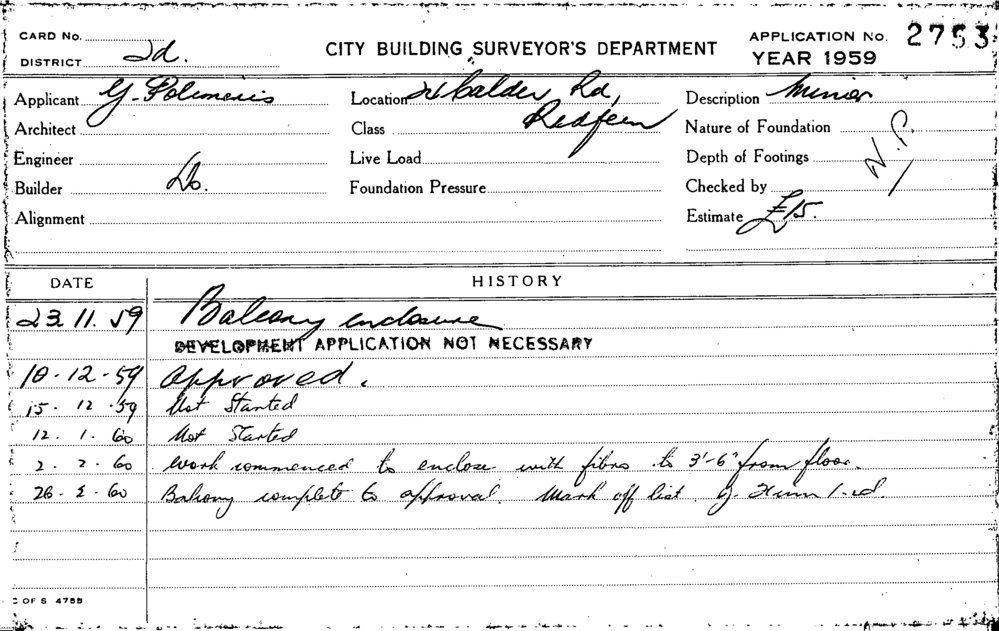 CARD No.
DISTRICT 2d.
CITY BUILDING SURVEYOR'S DEPARTMENT
APPLICATION No. 2753
YEAR 1959
Applicant G. Polimenis
Architect
Engineer
Builder Do.
Alignment
Location Calder Rd,
Redfern
Class
Live Load
Foundation Pressure
Description Minor
Nature of Foundation
Depth of Footings
Checked by
Estimate £15.
N.P.
DATE
HISTORY
23.11.59 Balcony enclosure
DEVELOPMENT APPLICATION NOT NECESSARY
10-12-59 Approved.
15. 12. 59 Not Started
12. 1. 60 Not Started
2. 2. 60 Work commenced to enclose with fibro to 3'-6" from floor.
26. 2. 60 Balcony complete to approval. Mark off list.
C OF S 4755